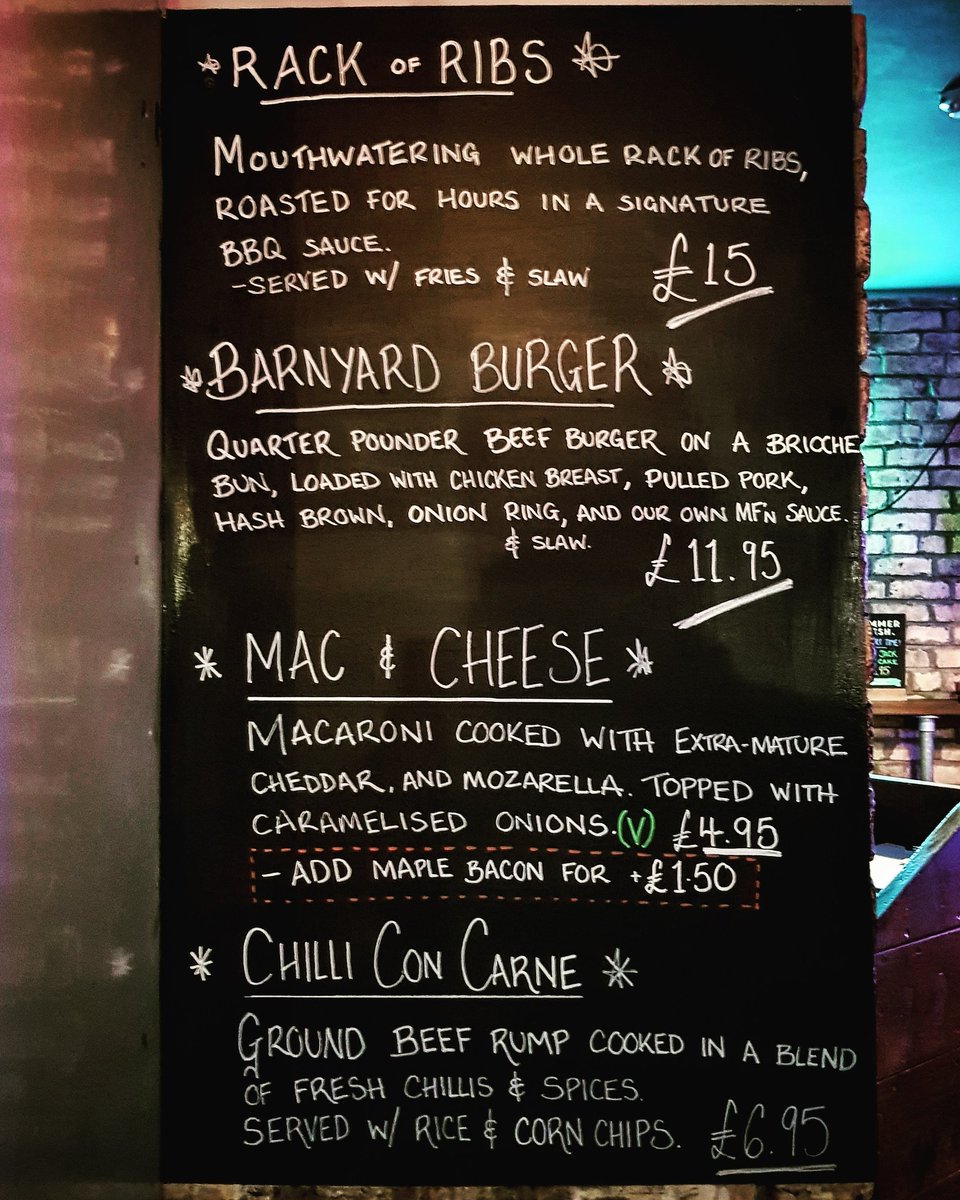 RACK OF RIBS
MOUTHWATERING WHOLE RACK OF RIBS,
ROASTED FOR HOURS IN A SIGNATURE
BBQ SAUCE.
-SERVED W/ FRIES & SLAW £15
BARNYARD BURGER
QUARTER POUNDER BEEF BURGER ON A BRIOCHE
BUN, LOADED WITH CHICKEN BREAST, PULLED PORK,
HASH BROWN, ONION RING, AND OUR OWN MF'N SAUCE.
& SLAW. £11.95
MAC & CHEESE
MACARONI COOKED WITH EXTRA-MATURE
CHEDDAR, AND MOZARELLA. TOPPED WITH
CARAMELISED ONIONS. (V) £4.95
- ADD MAPLE BACON FOR +£1.50
CHILLI CON CARNE
GROUND BEEF RUMP COOKED IN A BLEND
OF FRESH CHILLIS & SPICES.
SERVED W/ RICE & CORN CHIPS. £6.95